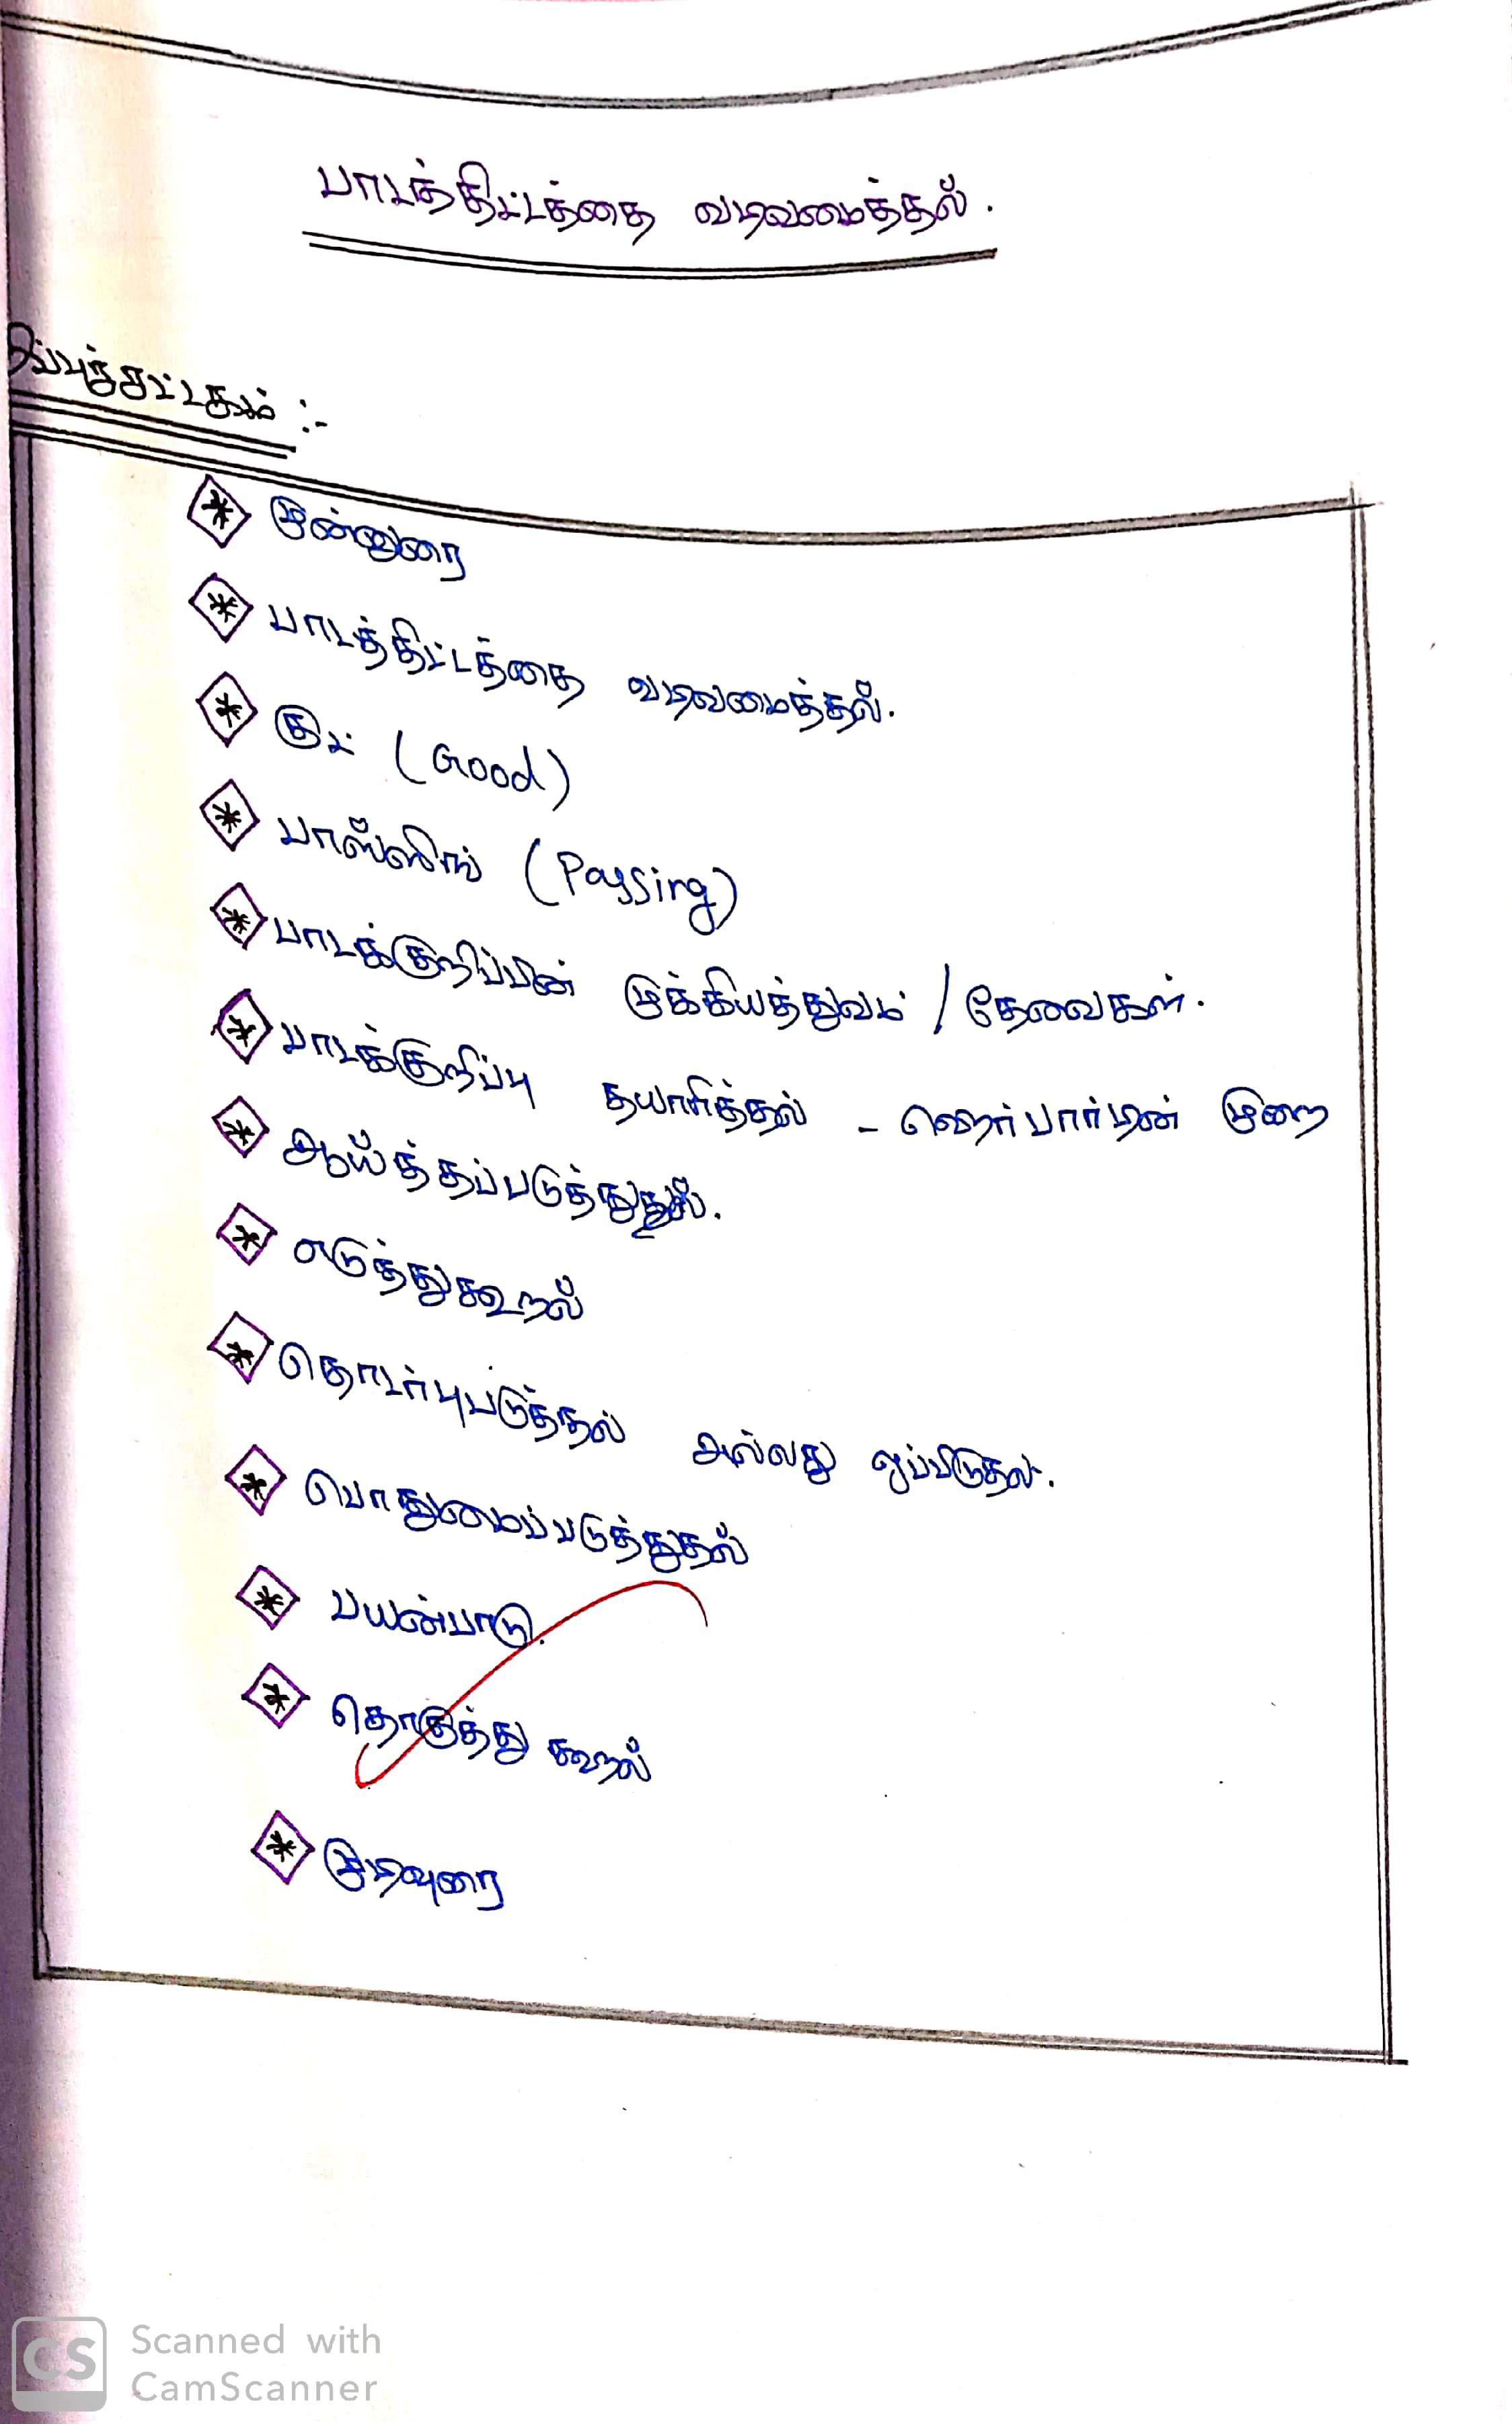 பாடத்திட்டத்தை வடிவமைத்தல்.
குறிப்புச்சட்டகம் :-
முன்னுரை
பாடத்திட்டத்தை வடிவமைத்தல்.
குட் (Good)
பாஸ்ஸிங் (Passing)
பாடக்குறிப்பின் முக்கியத்துவம் / தேவைகள்.
பாடக்குறிப்பு தயாரித்தல் - ஹெர்பார்டின் முறை
ஆயத்தப்படுத்துதல்.
எடுத்துகூறல்
தொடர்புபடுத்தல் அல்லது ஒப்பிடுதல்.
பொதுமைப்படுத்துதல்
பயன்பாடு.
தொகுத்து கூறல்
முடிவுரை
CS Scanned with
CamScanner